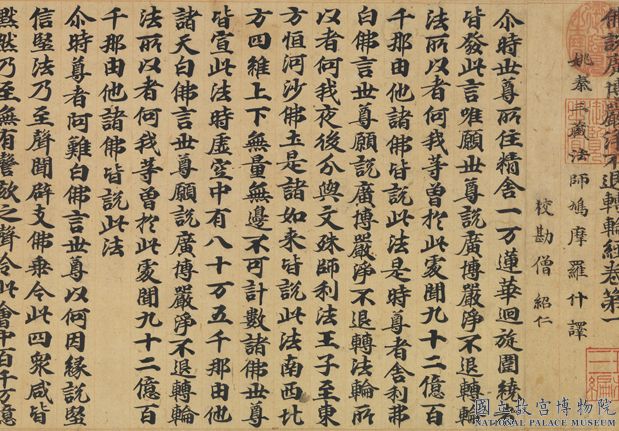 佛說廣博嚴淨不退轉輪經卷第一
姚秦三藏法師鳩摩羅什譯
校勘僧 紹仁
尒時世尊所住精舍一万蓮華迴旋圍繞
皆發此言唯願世尊說廣博嚴淨不退轉輪
法所以者何我等曾於此處聞九十二億百
千那由他諸佛皆說此法是時尊者舍利弗
白佛言世尊願說廣博嚴淨不退轉法輪所
以者何我夜後分與文殊師利法王子至東
方恒河沙佛土是諸如來皆說此法南西北
方四維上下無量無邊不可計數諸佛世尊
皆宣此法時虛空中有八十万五千那由他
諸天白佛言世尊願說廣博嚴淨不退轉輪
法所以者何我等曾於此處聞九十二億百
千那由他諸佛皆說此法
尒時尊者阿難白佛言世尊以何因緣說堅
信堅法乃至聲聞辟支佛乘令此四衆咸皆
默然乃至無有謦欬之聲令此會中百千万億
國立故宮博物院
NATIONAL PALACE MUSEUM